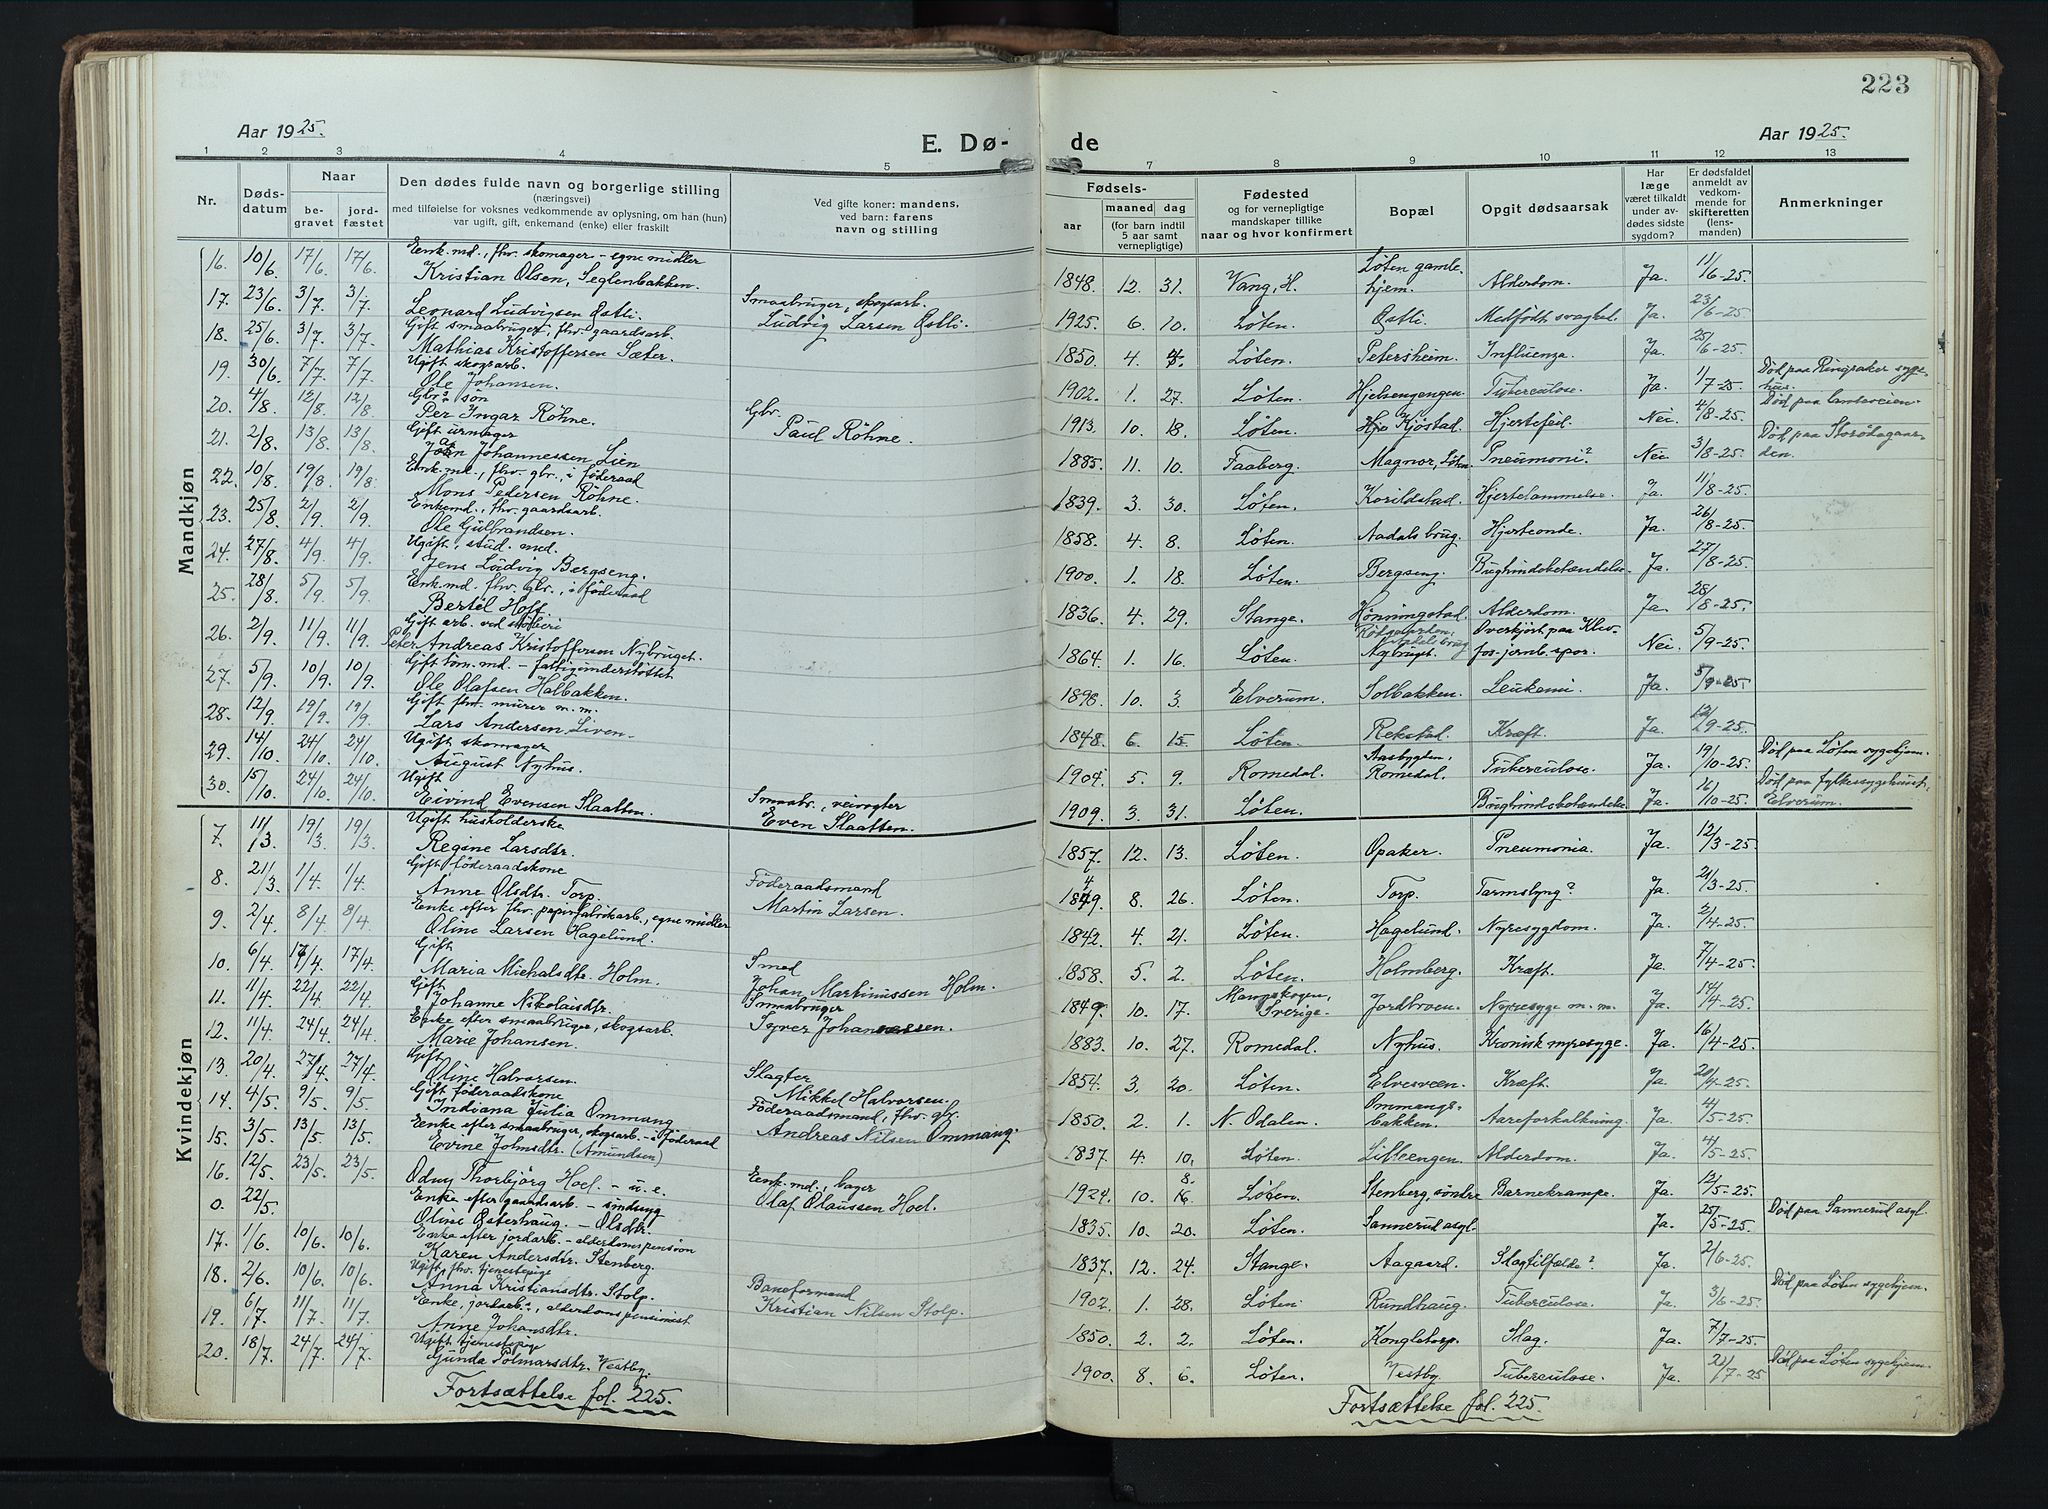 223
Aar 1925.
E. Dø-
de
Aar 1925.
1 2 3 4 5 7 8 9 10 11 12 13
Nr.
Døds-
datum
Naar
be-
gravet
jord-
fæstet
Den dødes fulde navn og borgerlige stilling
(næringsvei)
med tilføielse for voksnes vedkommende av oplysning, om han (hun)
var ugift, gift, enkemand (enke) eller fraskilt
Ved gifte koner: mandens,
ved barn: farens
navn og stilling
Fødsels-
aar
maaned
dag
(for barn indtil
5 aar samt
vernepligtige)
Fødested
og for vernepligtige
mandskaper tillike
naar og hvor konfirmert
Bopæl
Opgit dødsaarsak
Har
læge
været tilkaldt
under av-
dødes sidste
sygdom?
Er dødsfaldet
anmeldt av
vedkom-
mende for
skifteretten
(lens-
manden)
Anmerkninger
Mandkjøn
16. 10/6. 17/6. 17/6. Enk.md., fhv. skomager – egne midler
Kristian Olsen, Seglenbakken. 1848. 12. 31. Vang, H. Løten gamle-
hjem. Alderdom. Ja. 11/6-25.
17. 23/6. 3/7. 3/7. Leonard Ludvigsen Østli. Smaabruger, skogsarb.
Ludvig Larsen Østli. 1925. 6. 10. Løten. Østli. Medfødt svaghet. Ja. 23/6-25
18. 25/6. 3/7. 3/7. Gift smaabruger, fhv. gaardsarb.
Mathias Kristoffersen Sæter. 1850. 4. Løten. Petersheim. Influenza. Ja. 25/6-25.
19. 30/6. 7/7. 7/7. Ugift skogsarb.
Ole Johansen. 1902. 1. 27. Løten. Hjelsengengen. Tuberculose. Ja. 1/7-25. Død paa Ringsaker syge-
hus.
20. 4/8. 12/8. 12/8. Gbr.s søn
Per Ingar Røhne. Gbr.
Paul Røhne. 1913. 10. 18. Løten. Kjøstad. Hjertefeil. Nei. 4/8-25. Død paa
21. 2/8. 13/8. 13/8. Gift urmager
Johannessen Lien 1885. 11. 10. Faaberg. Magnor, Løten. Pneumoni? Nei. 3/8-25. Død paa Storødegaar-
den.
22. 10/8. 19/8. 19/8. Enk.md., fhv. gbr., i føderaad
Mons Pedersen Røhne. 1839. 3. 30. Løten. Korildstad. Hjertelammelse. Ja. 11/8-25.
23. 25/8. 2/9. 2/9. Enkemd., fhv. gaardsarb.
Ole Gulbrandsen. 1858. 4. 8. Løten. Aadals brug. Hjerteonde. Ja. 26/8-25.
24. 27/8. 4/9. 4/9. Ugift, stud. med.
Jens Ludvig Bergseng. 1900. 1. 18. Løten. Bergseng. Bughindebetændelse. Ja. 27/8-25.
25. 28/8. 5/9. 5/9. Enk.md. fhv. Gbr., i føderaad
Bertel Hoff. 1836. 4. 29. Stange. Hønningstad. Alderdom. Ja. 28/8-25.
26. 2/9. 11/9. 11/9. Gift arb. ved støberi
Peter Andreas Kristoffersen Nybruget. 1864. 1. 16. Løten. Aadals brug
Nybruget. Overkjørt paa Klev-
fos jernb. spor. Nei. 5/9-25.
27. 5/9. 10/9. 10/9. Gift tøm.md. – fattigunderstøttet
Ole Olafsen Halbakken. 1898. 10. 3. Elverum. Solbakken. Leukemi. Ja. 5/9-25
28. 12/9. 19/9. 19/9. Gift fhv. murer m.m.
Lars Andersen Liven. 1848. 6. 15. Løten. Rekstad. Kræft. Ja. 12/9-25.
29. 14/10. 24/10. 24/10. Ugift skomager
August Nyhus. 1904. 5. 9. Romedal. Aasbygden,
Romedal. Tuberculose. Ja. 19/10-25. Død paa Løten sygehjem.
30. 15/10. 24/10. 24/10. Ugift
Eivind Evensen Slaatten. Smaabr., veivogter
Even Slaatten. 1909. 3. 31. Løten. Bughindebetændelse. Ja. 16/10-25. Død paa fylkessygehuset,
Elverum.
Kvindekjøn
7. 11/3. 19/3. 19/3. Ugift husholderske
Regine Larsdtr. 1857. 12. 13. Løten. Opaker. Pneumonia. Ja. 12/3-25.
8. 21/3. 1/4. 1/4. Gift føderaadskone
Anne Olsdtr. Torp. Føderaadsmand
Martin Larsen. 1849. 8. 26. Løten. Torp. Tarmslyng? Ja. 21/3-25.
9. 2/4. 8/4. 8/4. Enke efter fhv. papirfabrikarb., egne midler
Oline Larsen Hagelund. 1842. 4. 21. Løten. Hagelund. Nyresygdom. Ja. 2/4-25.
10. 6/4. 17/4. 17/4. Gift
Maria Michalsdtr. Holm. Smed
Johan Martinussen Holm. 1858. 5. 2. Løten. Holmberg. Kræft. Ja. 7/4-25.
11. 11/4. 22/4. 22/4. Gift
Johanne Nikolaisdtr. Smaabruger
Syver Johannessen. 1849. 10. 17. Sverige. Jordbroen. Nyresyge m. m. Ja. 14/4-25.
12. 11/4. 24/4. 24/4. Enke efter smaabruger, skogsarb.
Marie Johansen. 1883. 10. 27. Romedal. Nyhus. Kronisk nyresyge. Ja. 16/4-25.
13. 20/4. 27/4. 27/4. Gift
Oline Halvorsen. Slagter
Mikkel Halvorsen. 1854. 3. 20. Løten. Elvesveen. Kræft. Ja. 20/4-25.
14. 4/5. 9/5. 9/5. Gift føderaadskone
Indiana Julia Ommang Føderaadsmand, fhv. gbr.
Andreas Nilsen Ommang. 1850. 2. 1. N. Odalen. Ommangs-
bakken. Aareforkalkning. Ja. 4/5-25.
15. 3/5. 13/5. 13/5. Enke efter smaabruger, skogsarb. – i føderaad
Evine Johnsdtr. (Amundsen) 1837. 4. 10. Løten. Lilleengen. Alderdom. Ja. 4/5-25.
16. 12/5. 23/5. 23/5. Odny Thorbjørg Hoel. – u. e. Enk.md., bager
Olaf Olaussen Hoel. 1924. 10. 8. Løten. Stenberg, søndre Barnekrampe. Ja. 12/5-25.
0. 22/5. Enke efter gaardsarb. – sindssyg
Oline Østerhaug. – Olsdtr. 1835. 10. 20. Løten. Sannerud asyl. Ja. 25/5-25. Død paa Sannerud asyl.
17. 1/6. 10/6. 10/6. Enke efter jordarb. – alderdomspension
Karen Andersdtr. Stenberg. 1837. 12. 24. Stange. Aagaard. Slagtilfælde? Ja. 2/6-25.
18. 2/6. 10/6. 10/6. Ugift fhv. tjenestepige
Anna Kristiansdtr. Stolp. Baneformand
Kristian Nilsen Stolp. 1902. 1. 28. Løten. Rundhaug. Tuberculose. Ja. 3/6-25. Død paa Løten sygehjem.
19. 6/7. 11/7. 11/7. Enke, jordarb.s, alderdomspensionist
Anne Johansdtr. 1850. 2. 2. Løten. Kongletorp. Slag. Ja. 7/7-25.
20. 18/7. 24/7. 24/7. Ugift tjenestepige
Gunda Polmarsdtr. Vestby. 1900. 8. 6. Løten. Vestby. Tuberculose. Ja. 21/7-25 Død paa Løten sygehjem.
Fortsættelse fol. 225.
Fortsættelse fol. 225.